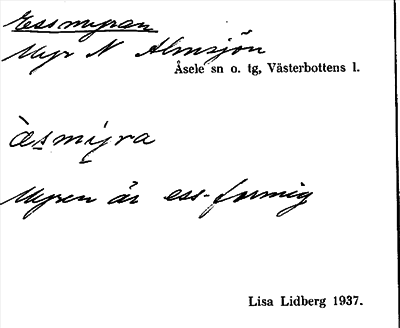 Essmyran
Myr N Almsjön
Åsele sn o. tg, Västerbottens l.
æ̀smỵra
Myren är ess-formig
Lisa Lidberg 1937.